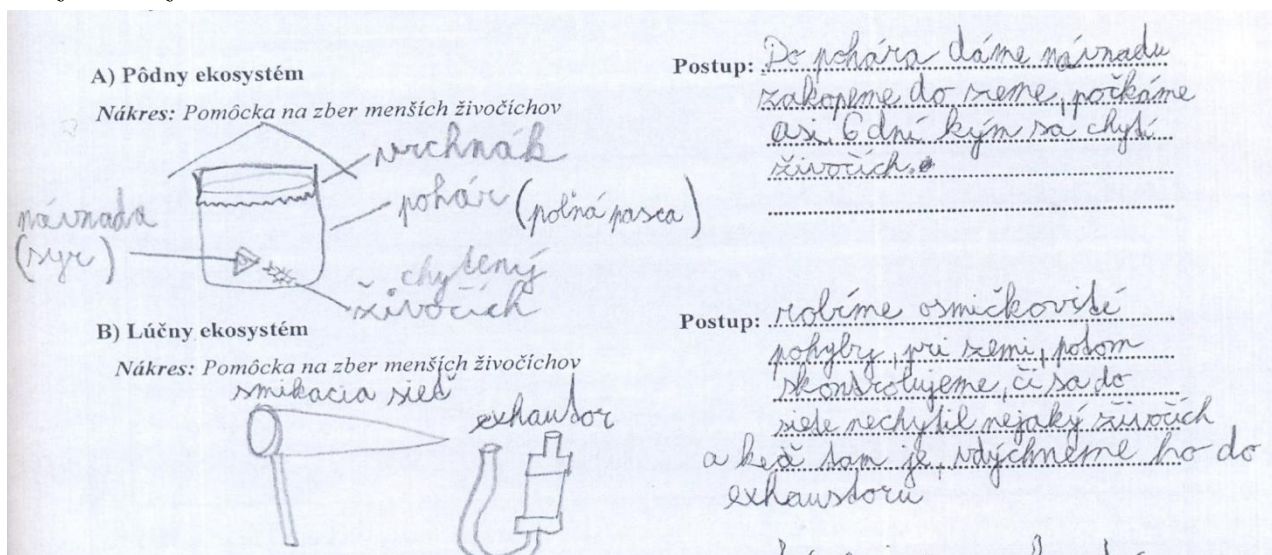 A) Pôdny ekosystém
Nákres: Pomôcka na zber menších živočíchov
vrchnák
pohár (poľná pasca)
návnada
(syr)
chytený
živočích
Postup: Do pohára dáme návnadu
zakopeme do zeme, počkáme
asi 6 dní kým sa chytí
živočích.
B) Lúčny ekosystém
Nákres: Pomôcka na zber menších živočíchov
smikacia sieť
exhaustor
Postup: robíme osmičkovité
pohyby, pri zemi, potom
skontrolujeme, či sa do
siete nechytil nejaký živočích
a keď tam je, vdýchneme ho do
exhaustoru